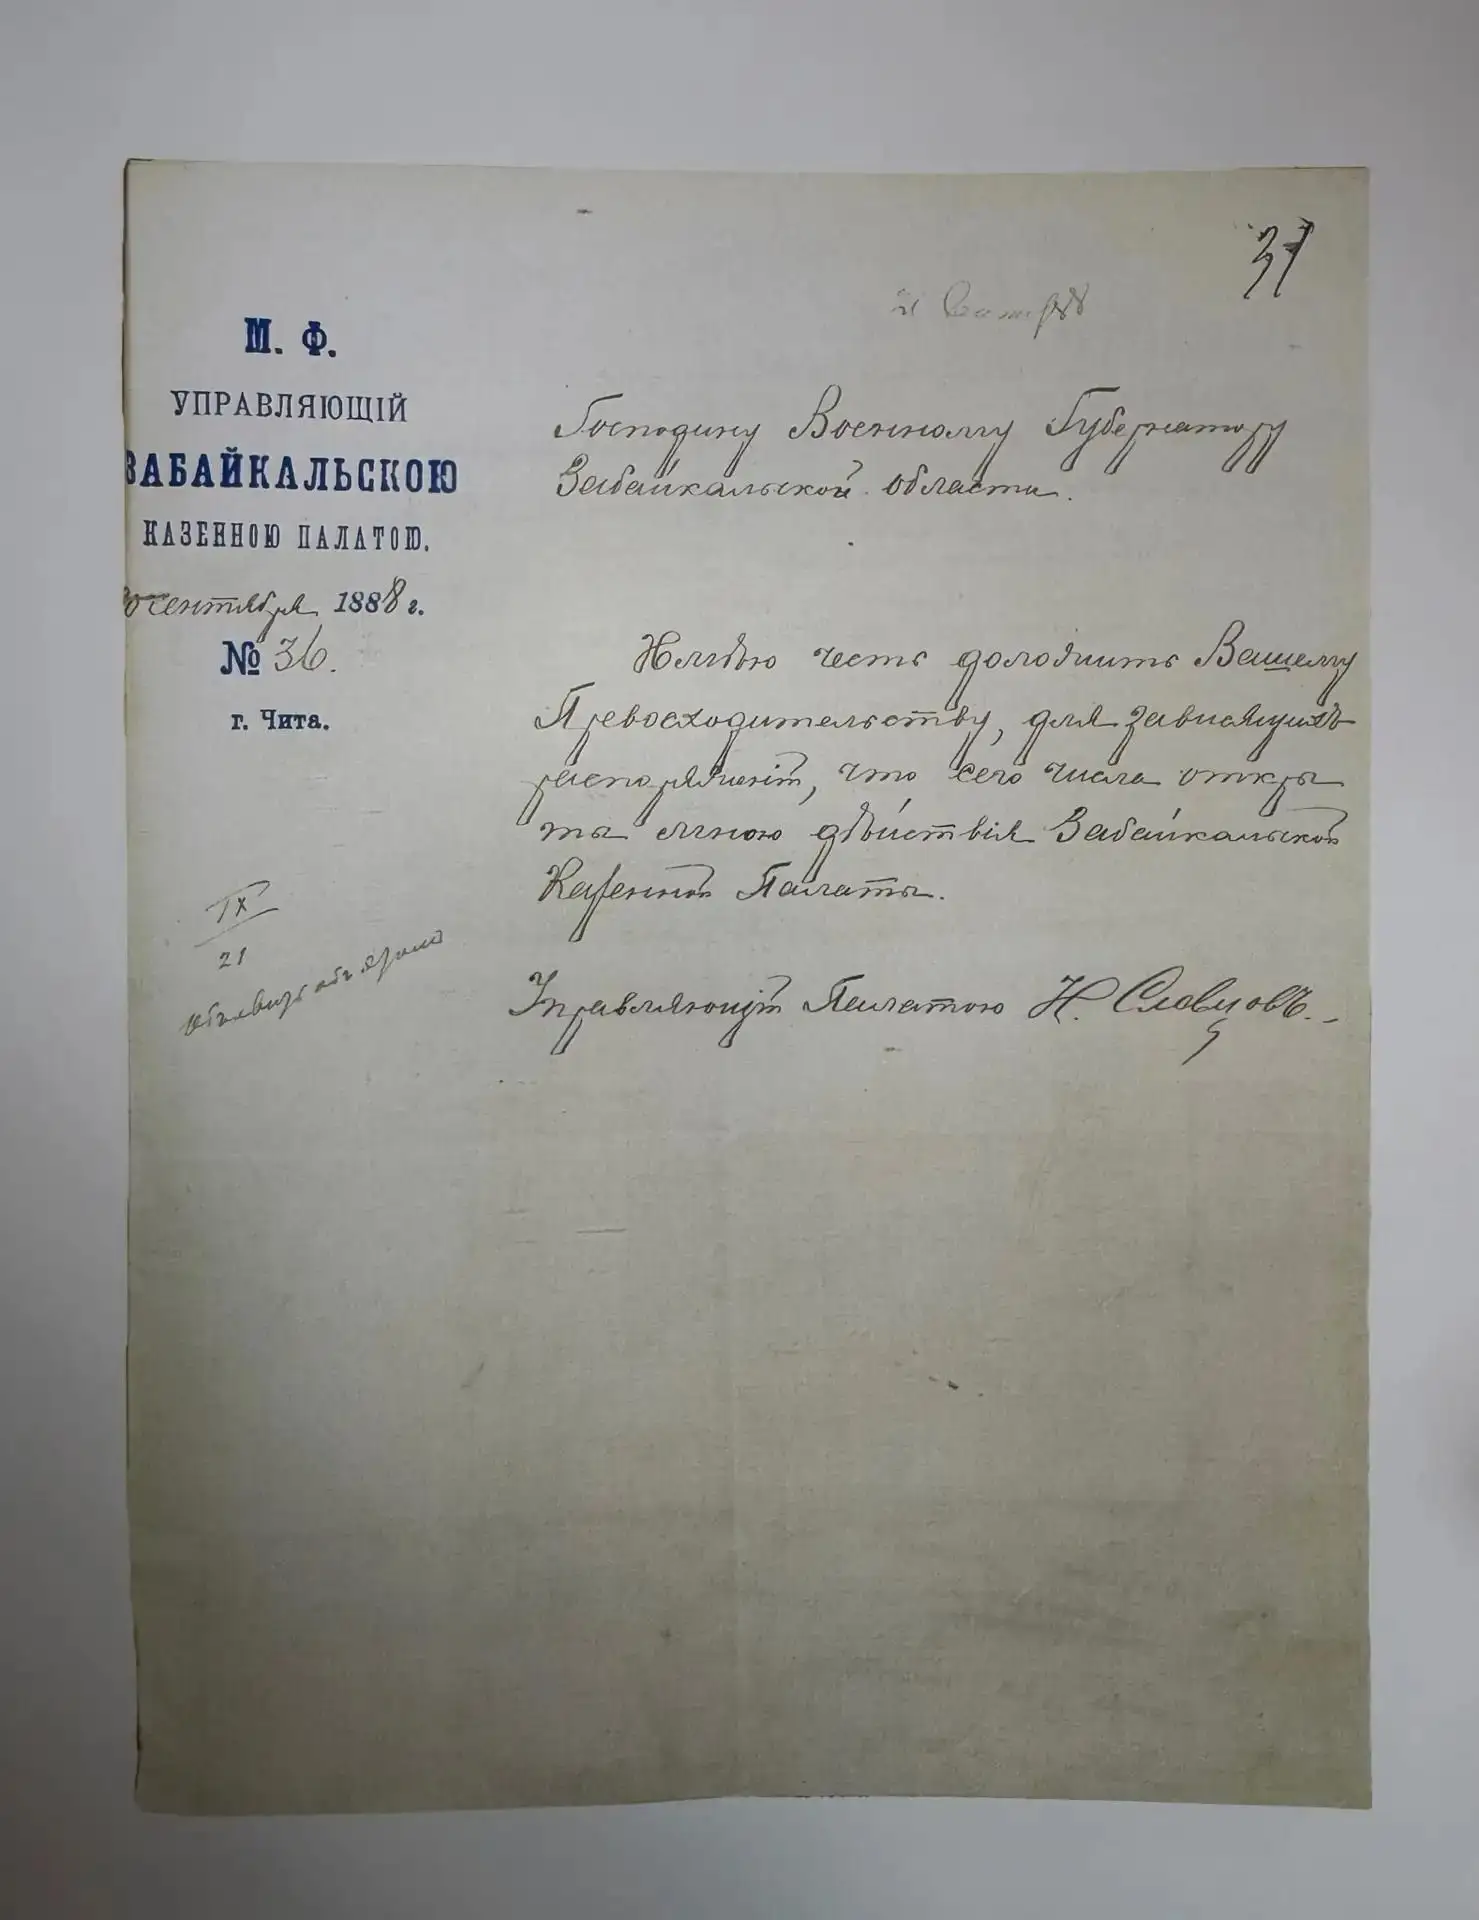 37
21 Сентяр 88
М. Ф.
УПРАВЛЯЮЩІЙ
ЗАБАЙКАЛЬСКОЮ
КАЗЕННОЮ ПАЛАТОЮ.
20 сентября 1888 г.
№ 36.
г. Чита.
Господину Военному Губернатору
Забайкальской области.
Имѣю честь доложить Вашему
Превосходительству, для зависящихъ
распоряженій, что сего числа откры
ты мною дѣйствія Забайкальской
Казенной Палаты.
Управляющій Палатою Н. Словцовъ.
IX
21